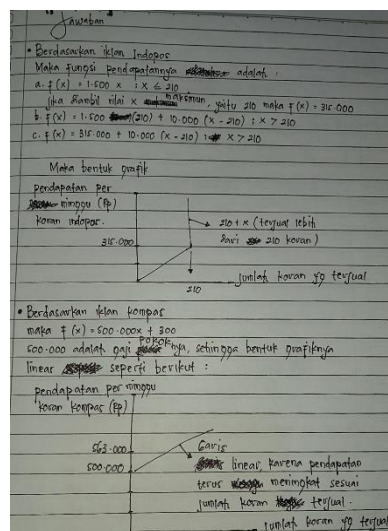 Jawaban
• Berdasarkan iklan Indopos
Maka fungsi pendapatannya adalah :
a. f(x) = 1.500 x ; x ≤ 210
jika diambil nilai x maksimum, yaitu 210 maka f(x) = 315.000
b. f(x) = 1.500 (210) + 10.000 (x - 210) ; x > 210
c. f(x) = 315.000 + 10.000 (x - 210) ; x > 210
Maka bentuk grafik
pendapatan per
minggu (Rp)
koran indopos.
210 + x (terjual lebih
dari 210 koran)
315.000
jumlah koran yg terjual
210
• Berdasarkan iklan kompas
maka f(x) = 500.000x + 300
500.000 adalah gaji pokoknya, sehingga bentuk grafiknya
linear seperti berikut :
pendapatan per minggu
koran kompas (Rp)
563.000
500.000
Garis
linear, karena pendapatan
terus meningkat sesuai
jumlah koran terjual.
jumlah koran yg terjual